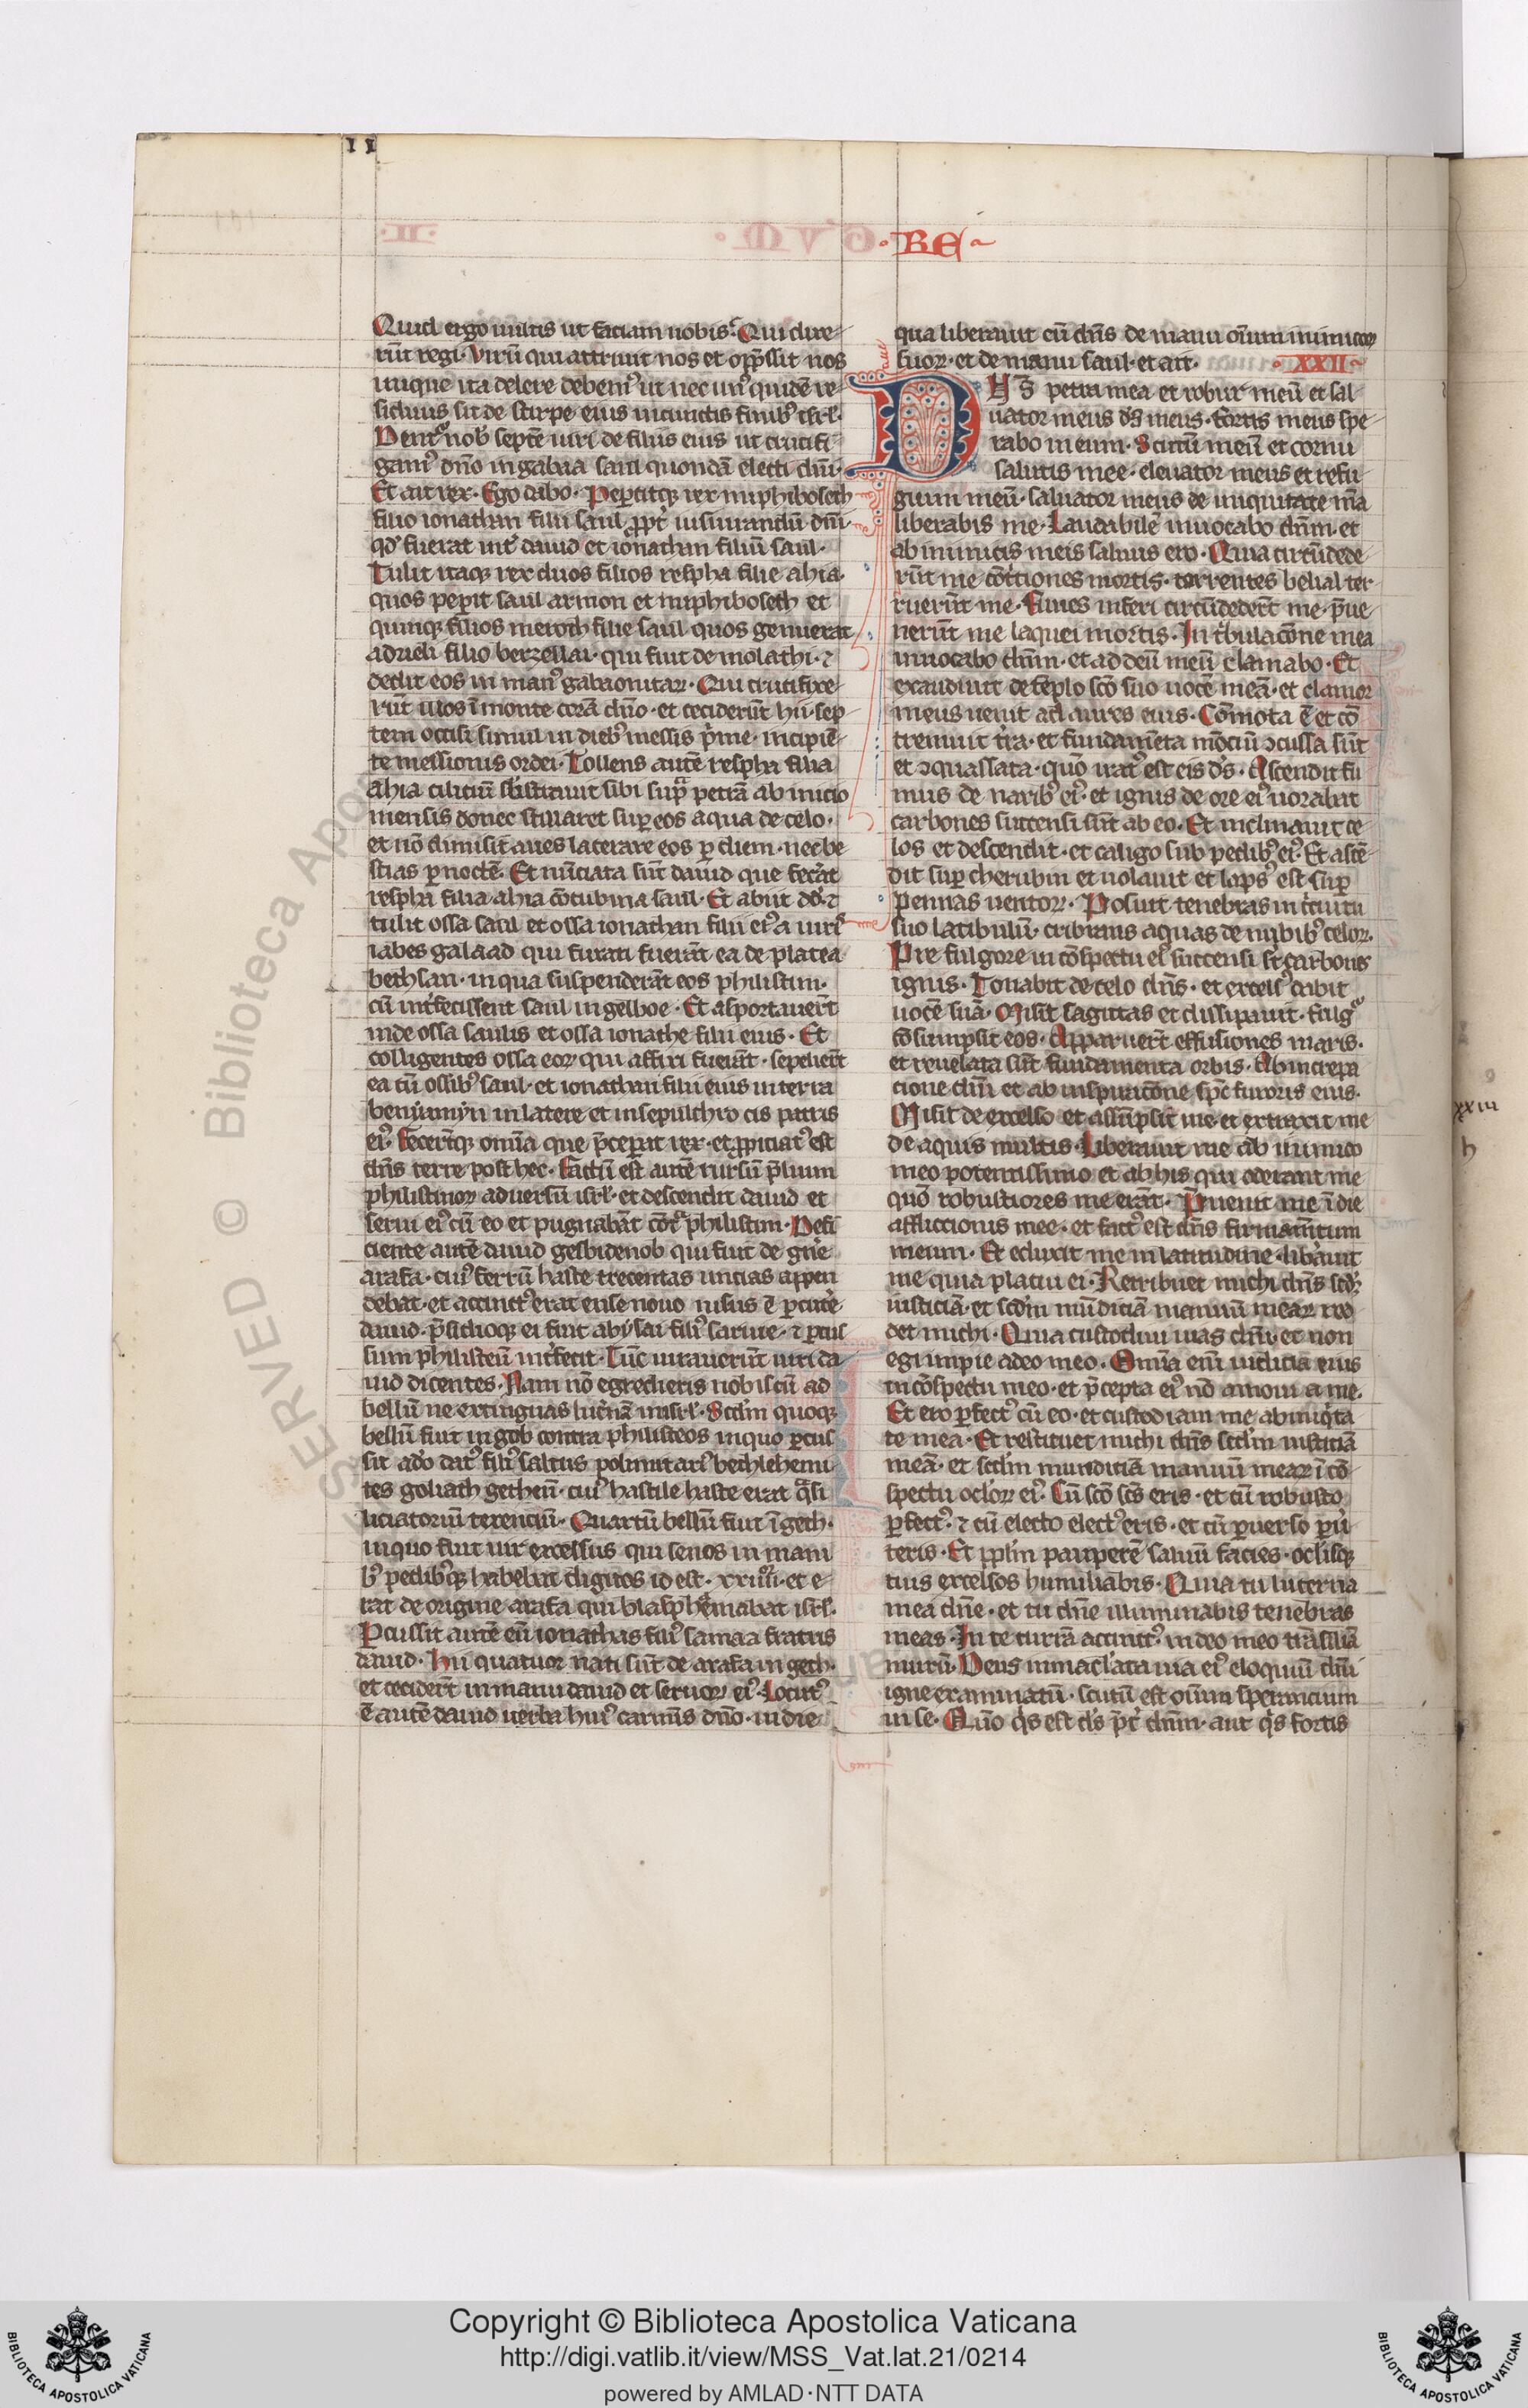 II
· RE ·
Quid ergo uultis ut faciam uobis? Qui dixe-
rūt regi. Virū qui attriuit nos et opp̄ssit nos
inique ita delere debem⁹ ut nec un⁹ quidē re-
siduus sit de stirpe eius in cunctis finib⁹ isrl̄.
Dent᷑ nob̄ septē uiri de filiis eius ut crucifi-
gam⁹ dn̄o in gabaa saul quondā electi dn̄i.
Et ait rex. Ego dabo. Peꝑcitqꝫ rex miphiboseth
filio ionathan filii saul ꝓpt̓ iusiurandū dn̄i
qd̓ fuerat int̓ dauid et ionathan filiū saul.
Tulit itaqꝫ rex duos filios respha filie ahia.
quos peꝑit saul armon et miphiboseth et
quinqꝫ filios merob filie saul quos genuerat
adrieli filio berzellai. qui fuit de molathi. ⁊
dedit eos in man⁹ gabaonitaꝝ. Qui crucifixe-
rūt uiros ī monte corā dn̄o. et ceciderūt hii sep-
tem occisi simul in dieb⁹ messis p̓me. incipiē-
te messionis ordei. Tollens autē respha filia
ahia cilicium sb̓strauit sibi supᷓ petrā ab inicio
mensis donec stillaret suꝑ eos aqua de celo.
et nō dimisit aues lacerare eos ꝑ diem. nec be-
stias ꝑ noctē. Et nūciata sūt dauid que fecāt
respha filia ahia cōcubina saul. Et abiit dd̓. ⁊
tulit ossa saul et ossa ionathan filii ei⁹ a uiris
iabes galaad qui furati fuerāt ea de platea
bethsan. in qua suspenderāt eos philistiim.
cū int̓fecissent saul in gelboe. Et asportauert̄
inde ossa saulis et ossa ionathe filii eius. Et
colligentes ossa eoꝝ qui affixi fuerāt. sepeliert̄
ea cū ossib⁹ saul. et ionathan filii eius in terra
beniamyn in latere et in sepulchro cis patris
ei⁹. Fecert̄qꝫ omīa que p̄ceperat rex. et ꝓpiciat⁹ est
dn̄s terre post hec. Factū est autē rursū p̄lium
philistinoꝝ aduersū isrl̄. et descendit dauid et
serui ei⁹ cū eo et pugnabāt cōtᷓ philistiim. Defi-
ciente autē dauid gesbidenob qui fuit de gn̄e
arafa. cui⁹ ferrū haste trecentas uncias appen-
debat. et accinct⁹ erat ense nouo nisus ē ꝑcut̓e
dauid. p̄sidioqꝫ ei fuit abysai fili⁹ saruie. ⁊ ꝑcus-
sum philisteū int̓fecit. Tūc iurauerūt uiri da-
uid dicentes. Nam nō egredieris nobiscū ad
bellū ne extinguas lucernā in isrl̄. Scd̄m quoqꝫ
bellū fuit in gob contra philisteos in quo ꝑcus-
sit ado dat⁹ fili⁹ saltus polimitari⁹ bethlehemi-
tes goliath getheū. cui⁹ hastile haste erat qᷓsi
liciatoriū texenciū. Quartū bellū fuit ī geth.
in quo fuit uir excelsus qui senos in mani-
b⁹ pedib⁹qꝫ habebat digitos id est. xxiiii. et e-
rat de origine arafa qui blasphemabat isrl̄.
Ꝑcussit autē eū ionathas fili⁹ samaa fratris
dauid. Hii quatuor nati sūt de arafa in geth.
et cecidert̄ in manu dauid et seruoꝝ ei⁹. Locut⁹
ē autē dauid uerba hui⁹ carmīs dn̄o in die
qua liberauit eū dn̄s de manu oīum inimicoꝝ
suoꝝ. et de manu saul. et ait. · XXII ·
DNS̄ petra mea et robur meū et sal-
uator meus ds̄ meus. fortis meus spe-
rabo in eum. Scutū meū et cornu
salutis mee. eleuator meus et refu-
gium meū. saluator meus de iniquitate mᷓa
liberabis me. Laudabilē inuocabo dn̄m. et
ab inimicis meis saluus ero. Quia circūdede-
rūt me cōt̓ciones mortis. torrentes belial ter-
ruerūt me. Funes inferi circūdedert̄ me. p̄ue-
nerūt me laquei mortis. In t̓bulacōne mea
inuocabo dn̄m. et ad deū meū clamabo. Et
exaudiuit de tēplo scō suo uocē meā. et clamor
meus uenit ad aures eius. Cōmota ē et cō-
tremuit t̓ra. et fundamēta mōciū ɔcussa sūt
et ɔquassata. quō irat⁹ est eis ds̄. Ascendit fu-
mus de narib⁹ ei⁹. et ignis de ore ei⁹ uorabit
carbones succensi sūt ab eo. Et inclinauit ce-
los et descendit. et caligo sub pedib⁹ ei⁹. Et ascē-
dit suꝑ cherubin et uolauit et laps⁹ est suꝑ
pennas uentoꝝ. Posuit tenebras in circuitu
suo latibulū. cribrans aquas de nubib⁹ celoꝝ.
Pre fulgore in cōspectu ei⁹ succensi st̄ carbones
ignis. Tonabit de celo dn̄s. et excels⁹ dabit
uocē suā. Misit sagittas et dissipauit. fulg᷑
cōsumpsit eos. Apparuert̄ effusiones maris.
et reuelata sūt fundamenta orbis. Ab increpa-
cione dn̄i et ab inspiracōne sp̄c furoris eius.
Misit de excelso et assūpsit me. et extraxit me
de aquis multis. Liberauit me ab inimico
meo potentissimo et ab his qui oderant me
quō robustiores me erāt. P̄uenit me ī die
affliccionis mee. et fact⁹ est dn̄s firmamtum
meum. Et eduxit me in latitudine. lib̓auit
me quia placui ei. Retribuet michi dn̄s scd̓m
iusticiā. et scd̄m mūdiciā manuū meaꝝ red-
det michi. Quia custodiui uias dn̄i. et non
egi impie a deo meo. Omīa em̄ iudicia eius
in cōspectu meo. et p̄cepta ei⁹ nō amoui a me.
Et ero ꝑfect⁹ cū eo. et custodiam me ab iniq̓ta-
te mea. Et restituet michi dn̄s scd̄m iusticiā
meā. et scd̄m mundiciā manuū meaꝝ ī cō-
spectu ocl̓oꝝ ei⁹. Cū scō scs̄ eris. et cū robusto
ꝑfect⁹. ⁊ cū electo elect⁹ eris. et cū ꝑuerso ꝑū-
teris. Et ppl̄m pauperē saluū facies. ocl̓isqꝫ
tuis excelsos humiliabis. Quia tu lucerna
mea dn̄e. et tu dn̄e illuminabis tenebras
meas. In te currā accinct⁹. in deo meo trāsiliā
murū. Deus inmacl̓ata uia ei⁹ eloquiū dn̄i
igne examinatū. scutū est oīum sperancium
in se. Quō q̓s est ds̄ p̄t̓ dn̄m. aut q̓s fortis
xxiii
h
SERVED © Biblioteca Apo
Copyright © Biblioteca Apostolica Vaticana
http://digi.vatlib.it/view/MSS_Vat.lat.21/0214
powered by AMLAD·NTT DATA
BIBLIOTECA APOSTOLICA VATICANA
BIBLIOTECA APOSTOLICA VATICANA